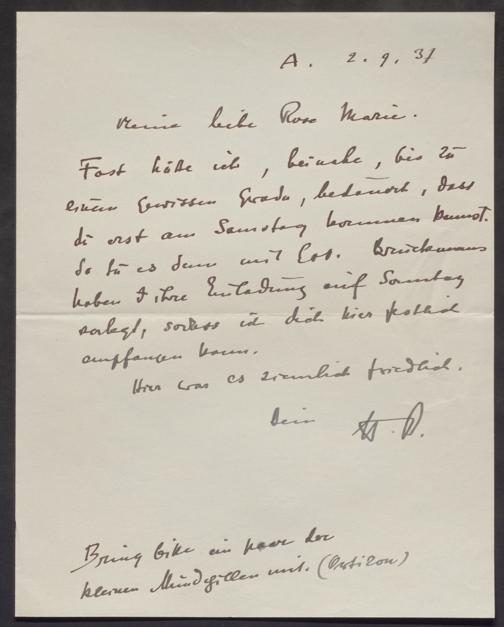 A. 2.9.37
Meine liebe Rose Marie.
Fast hätte ich, beinahe, bis zu
einem gewissen Grade, bedauert, dass
du erst am Samstag kommen kannst.
So tu es denn mit Gott. Bruckmanns
haben ihre Einladung auf Sonntag
verlegt, sodass ich dich hier festlich
empfangen kann.
Hier war es ziemlich friedlich.
Dein
Bring bitte ein paar der
kleinen Mundpillen mit. (Ortizon)